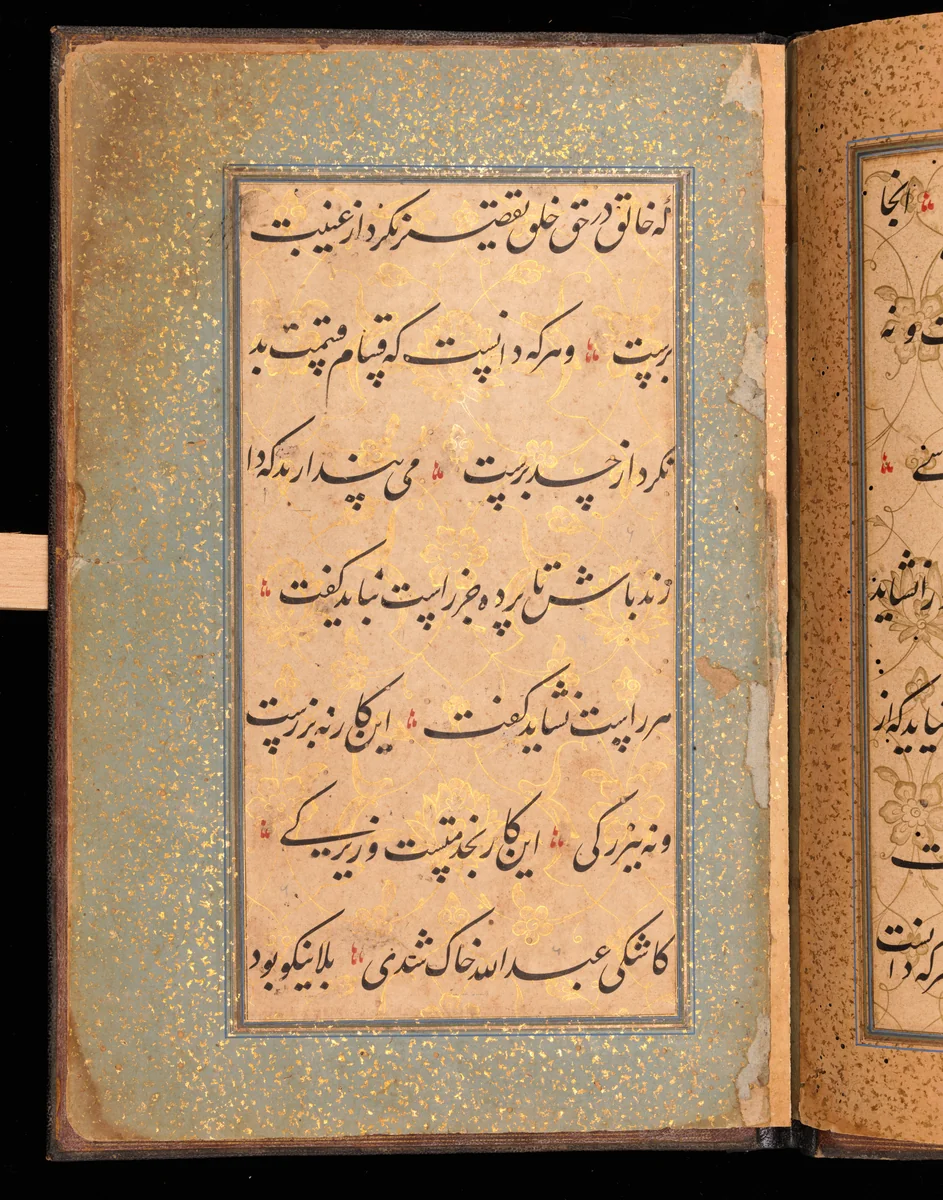 که خالق در حق خلق تقصیر نکرد از غیبت
برست وهرکه دانست که قسام قسمت بد
نکرد از حسد برست می پندارید که دا
رند باش تا پرده خرراست نباید گفت
هرراست نشاید گفت این کار نه بزرست
ونه ببزرگی این کار بخدمتست و زیرکی
کاشکی عبدالله خاک شدی بلا نیکو بود
انجا
ت و نه
را نشاید
نیاید که از
ت
نست
هرکه دا